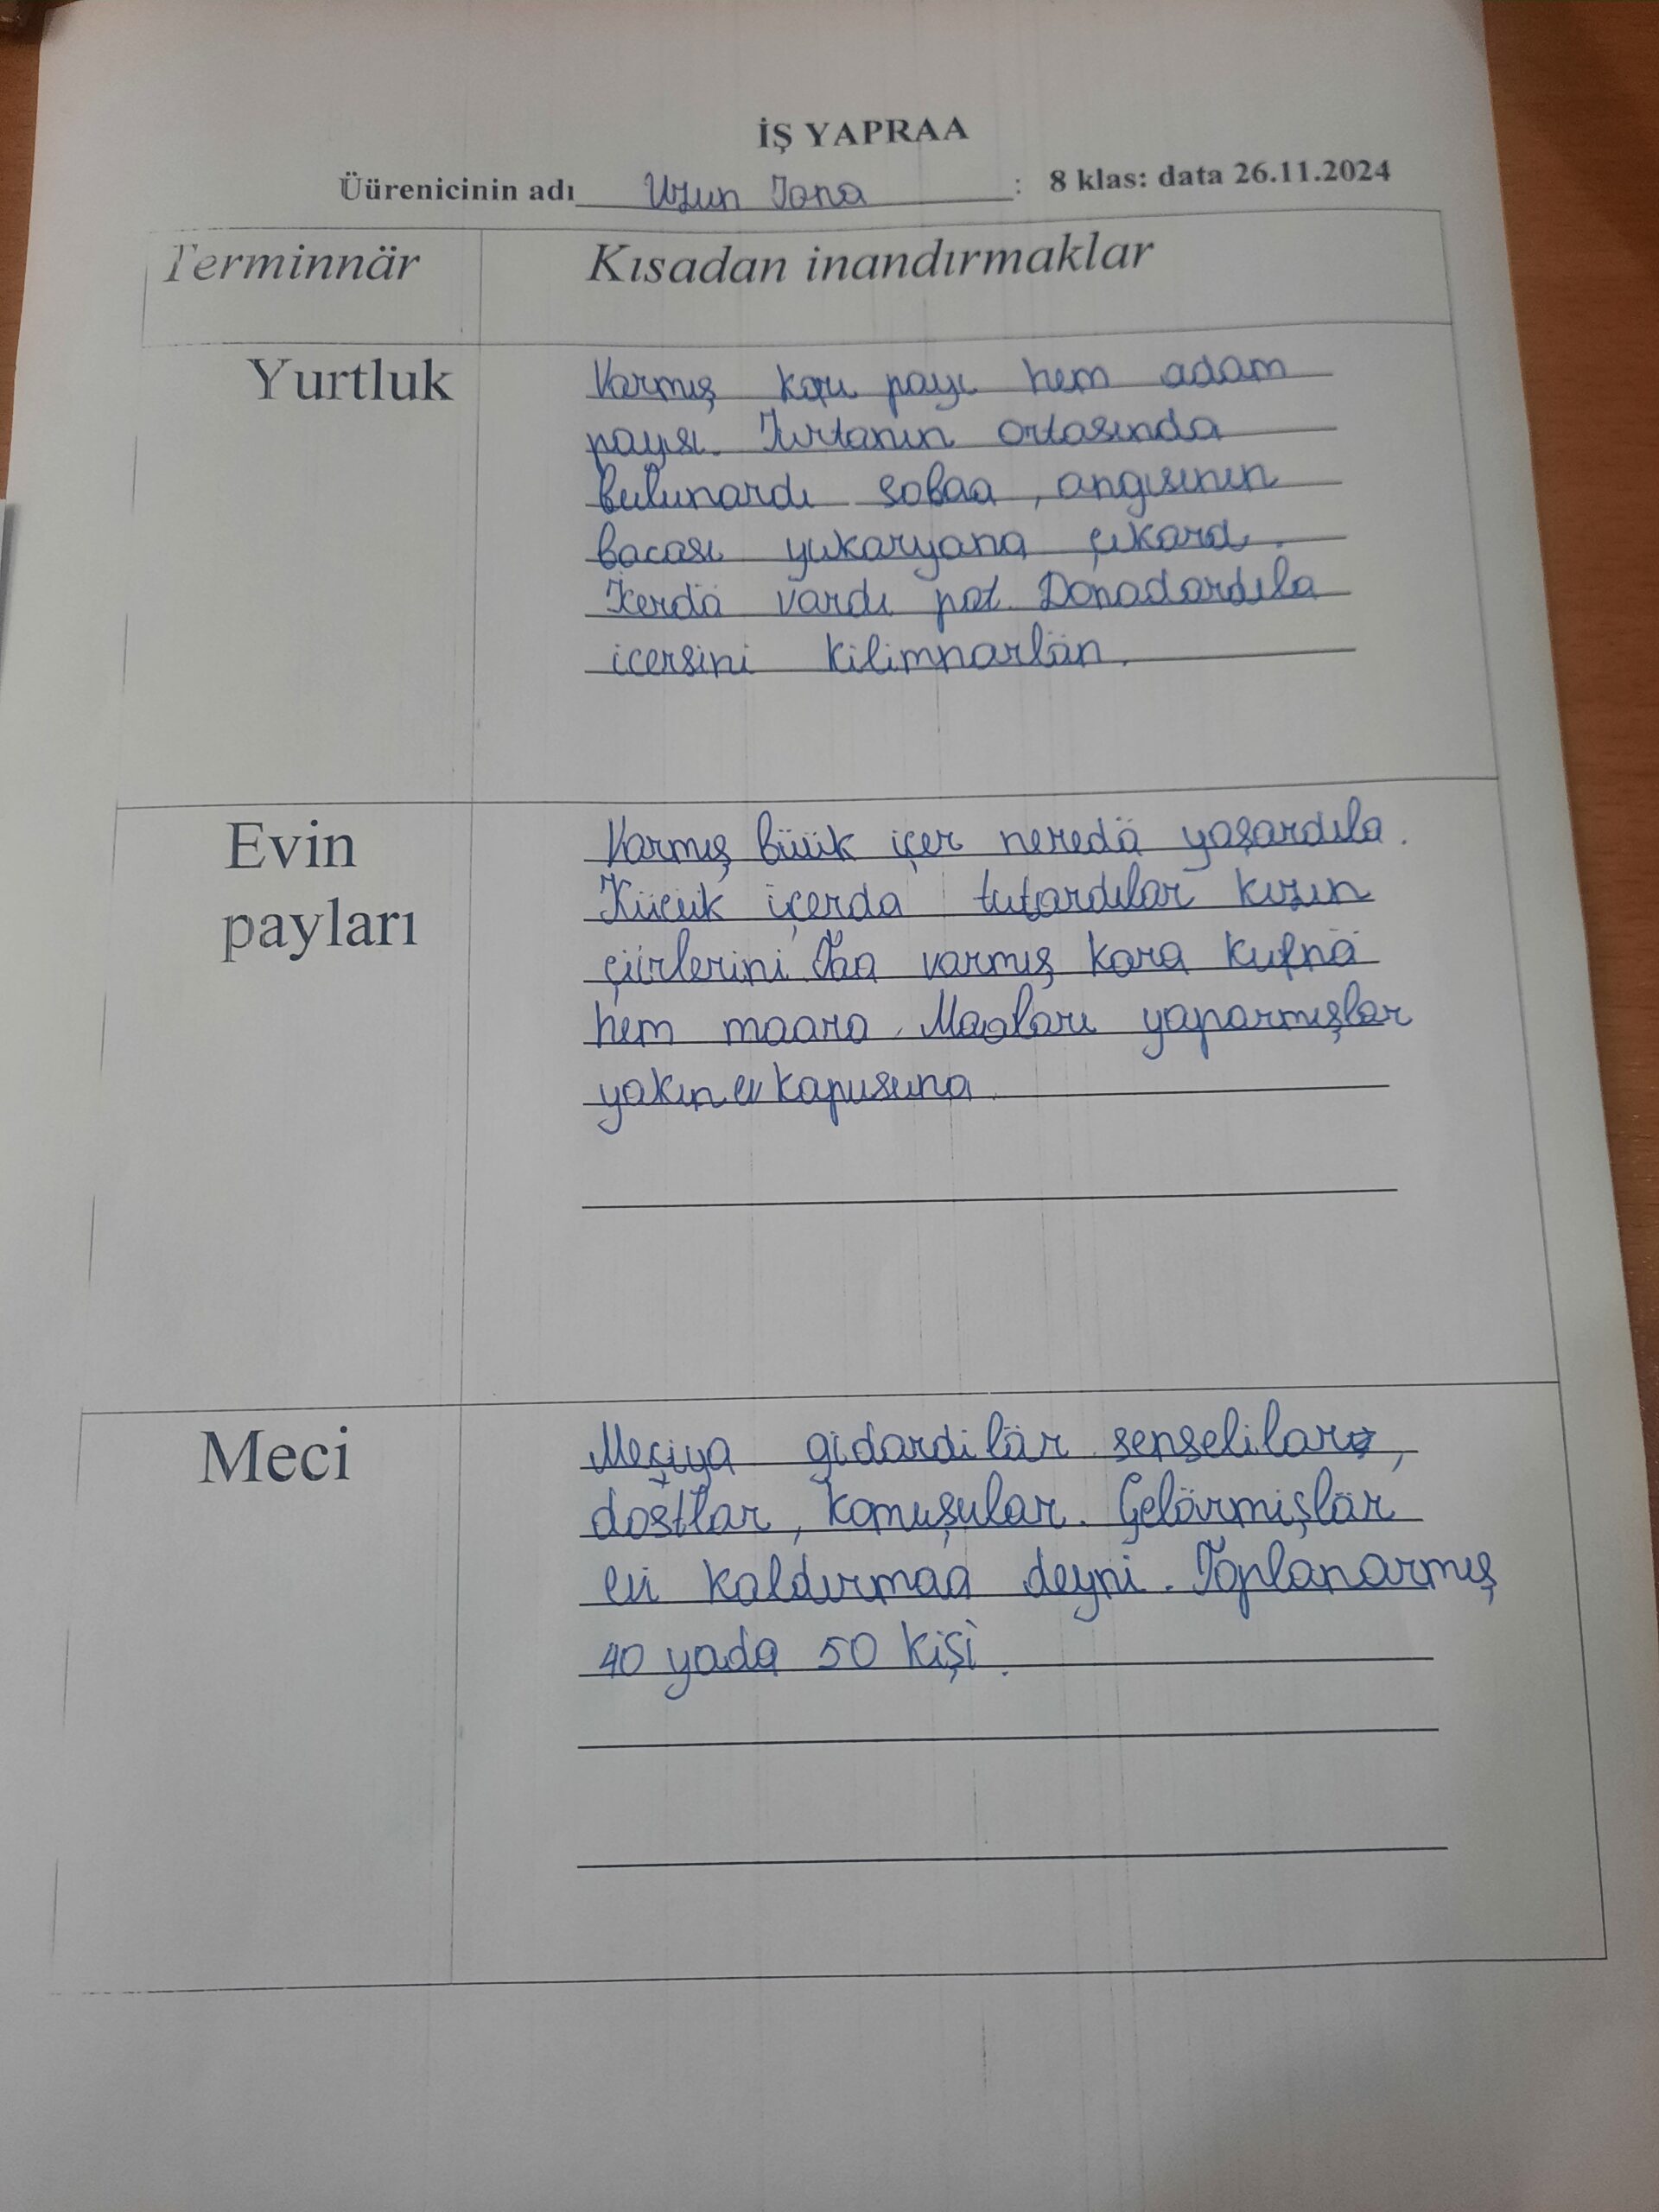 İŞ YAPRAA
Üürenicinin adı Uzun Iana : 8 klas: data 26.11.2024
Terminnär Kısadan inandırmaklar
Yurtluk
Varmış karı payı hem adam
payısı. Iurtanın ortasında
bulunardı sobaa, angısının
bacası yukaryana çıkard.
İcerdä vardı pat. Donadardıla
icersini kilimnarlän.
Evin
payları
Varmış büük içer neredä yaşardıla.
Küçük içerda tutardılar kızın
çiirlerini. Taa varmış kara kufnä
hem maara. Maaları yaparmışlar
yakın ev kapusuna
Meci
Meçiya gidardilär senselilar,
dostlar, komuşular. Gelärmişlär
evi kaldırmaa deyni. Toplanarmış
40 yada 50 kişi.